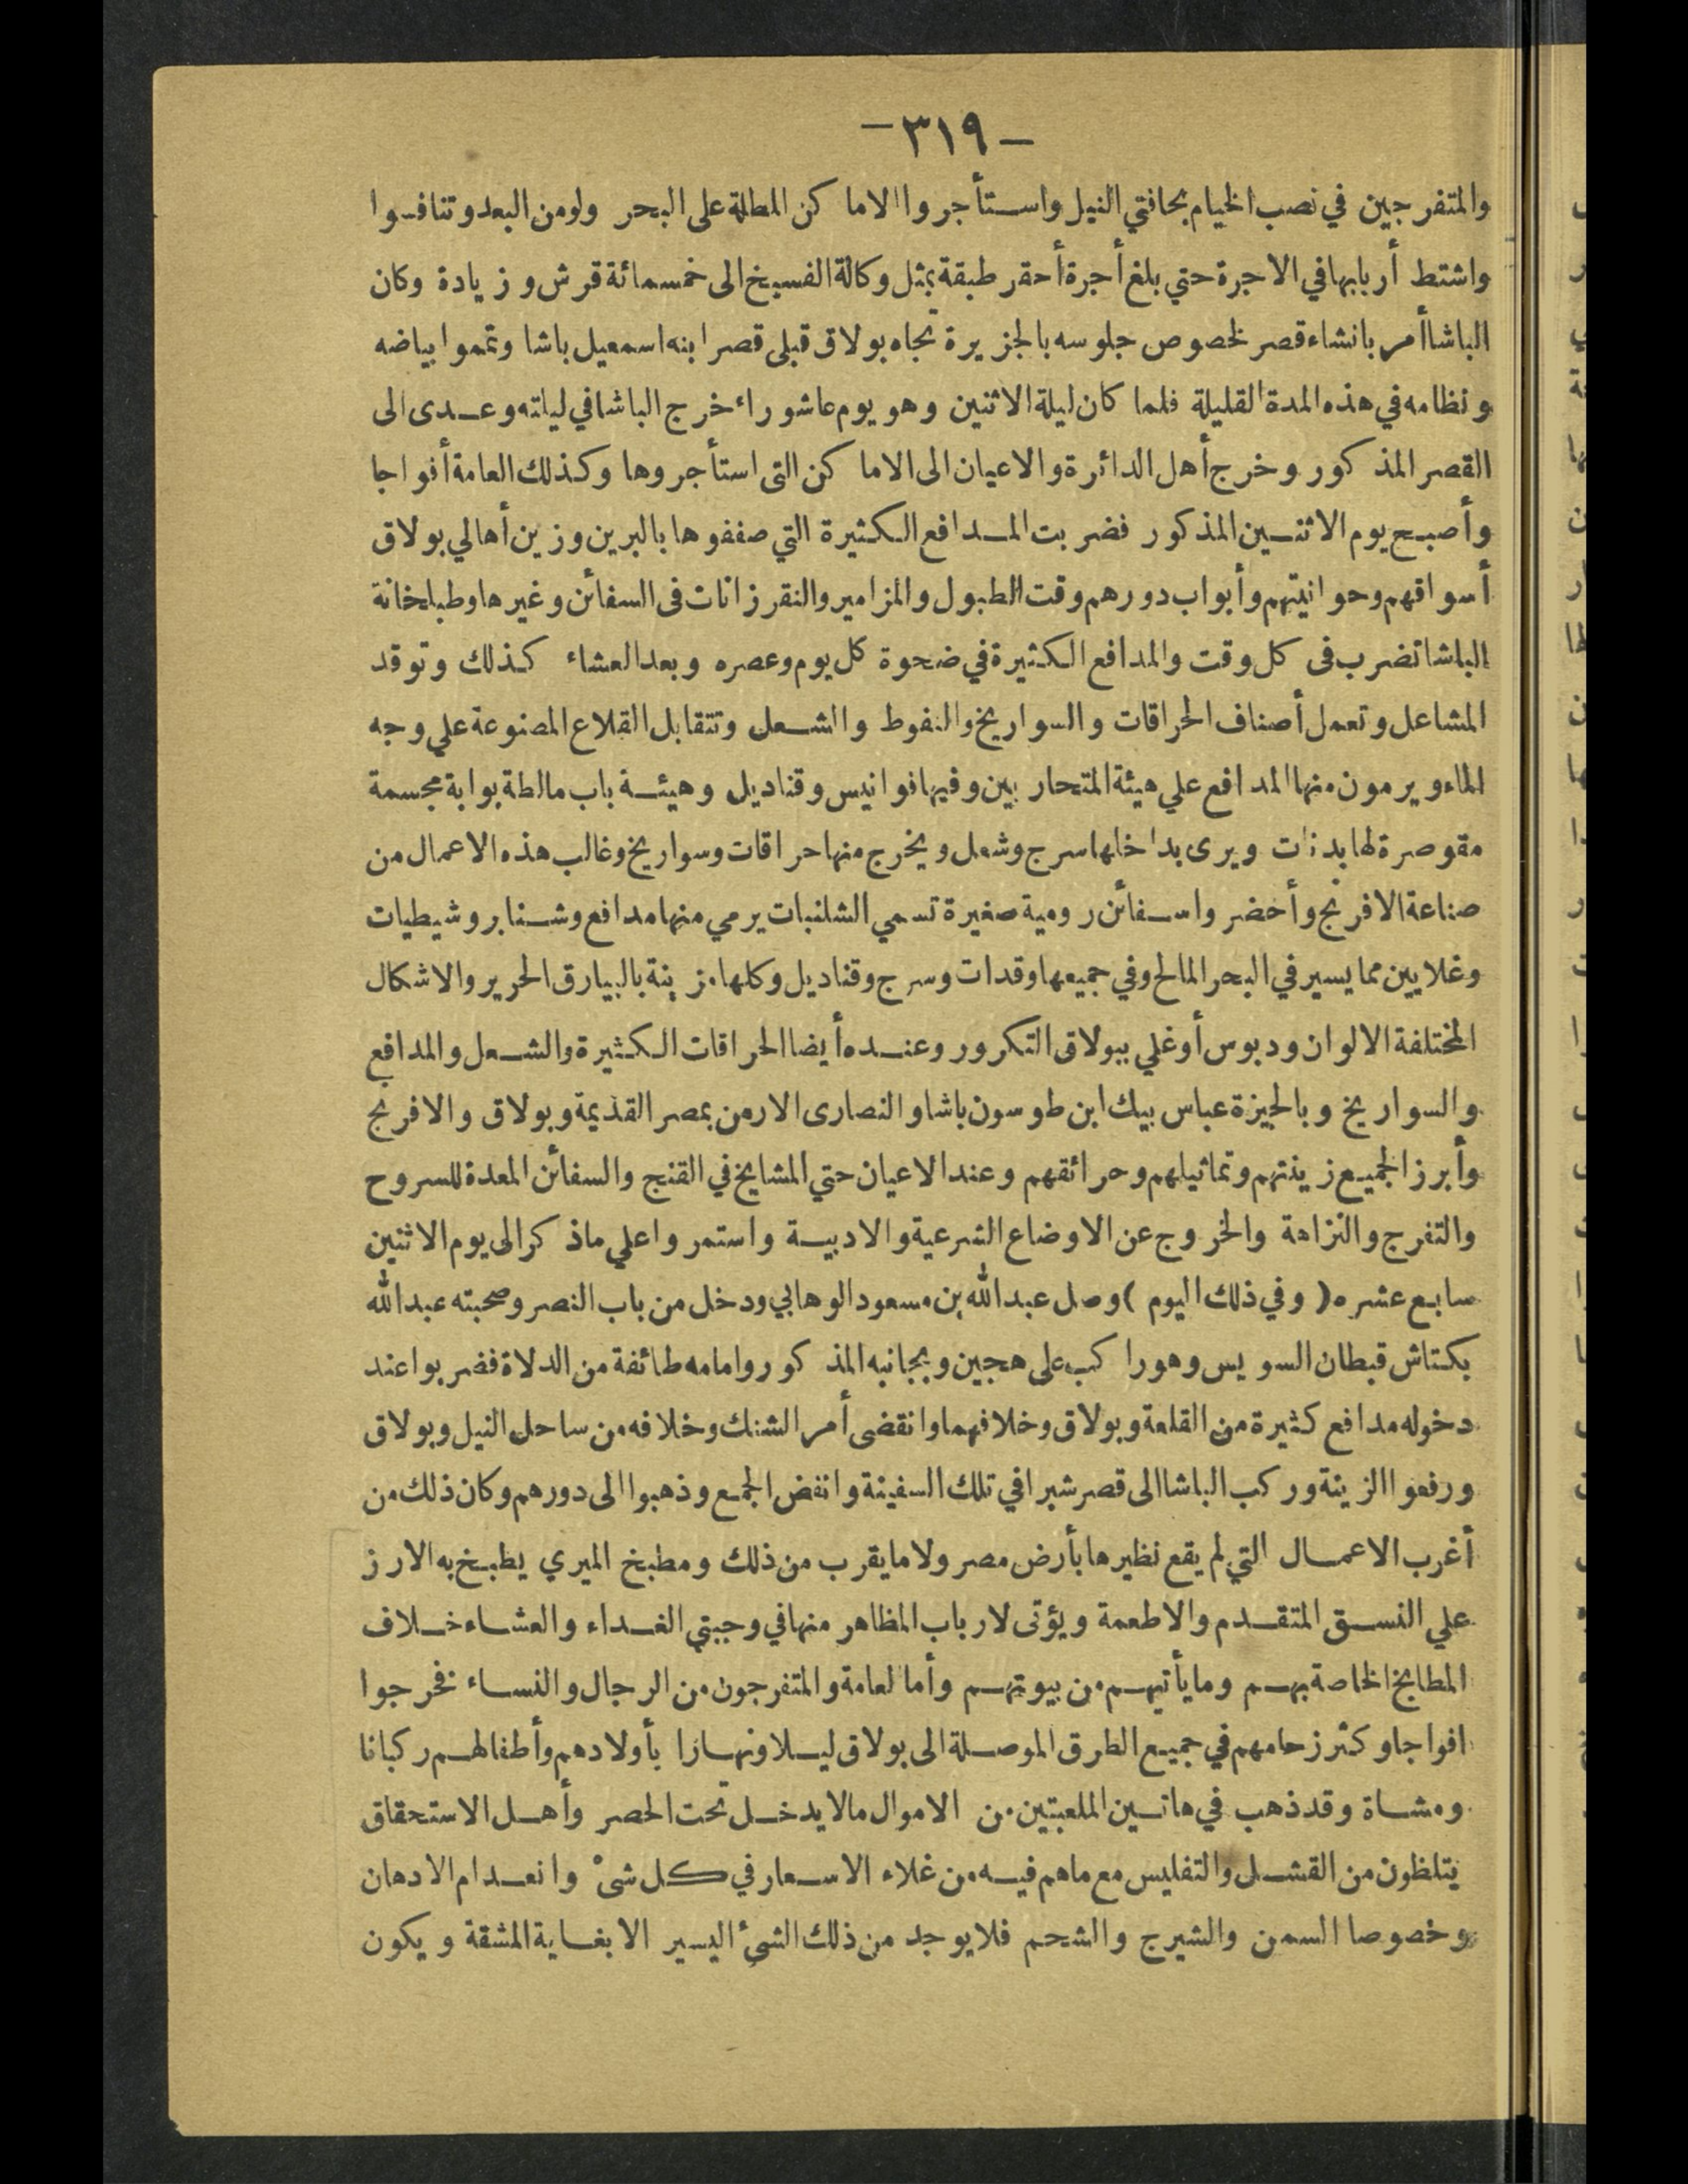 — ٣١٩ —
والمتفرجين في نصب الخيام بحافتي النيل واستأجروا الاماكن المطلة على البحر ولو من البعد وتنافسوا
واشتط أربابها في الاجرة حتي بلغ أجرة أحقر طبقة بمثل وكالة الفسيخ الى خمسمائة قرش وزيادة وكان
الباشا أمر بانشاء قصر لخصوص جلوسه بالجزيرة تجاه بولاق قبلى قصر ابنه اسمعيل باشا وتمموا بياضه
ونظامه في هذه المدة القليلة فلما كان ليلة الاثنين وهو يوم عاشوراء خرج الباشا في ليلته وعدى الى
القصر المذكور وخرج أهل الدائرة والاعيان الى الاماكن التى استأجروها وكذلك العامة أفواجا
وأصبح يوم الاثنين المذكور فضربت المدافع الكثيرة التي صففوها بالبرين وزين أهالي بولاق
أسواقهم وحوانيتهم وأبواب دورهم وقت الطبول والمزامير والنقرزانات فى السفائن وغيرها وطبلخانة
الباشا تضرب فى كل وقت والمدافع الكثيرة في ضحوة كل يوم وعصره وبعد العشاء كذلك وتوقد
المشاعل وتعمل أصناف الحراقات والسواريخ والنفوط والشعل وتتقابل القلاع المصنوعة علي وجه
الماء ويرمون منها المدافع علي هيئة المتحاربين وفيها فوانيس وقناديل وهيئة باب مالطة بوابة مجسمة
مقوصرة لها بدنات ويرى بداخلها سرج وشعل ويخرج منها حراقات وسواريخ وغالب هذه الاعمال من
صناعة الافرنج وأحضر واسفائن رومية صغيرة تسمي الشلنبات يرمي منها مدافع وشنابر وشيطيات
وغلايين مما يسير في البحر المالح وفي جميعها وقدات وسرج وقناديل وكلها مزينة بالبيارق الحرير والاشكال
المختلفة الالوان ودبوس أوغلي ببولاق التكرور وعنده أيضا الحراقات الكثيرة والشعل والمدافع
والسواريخ وبالجيزة عباس بيك ابن طوسون باشا والنصارى الارمن بمصر القديمة وبولاق والافرنج
وأبرز الجميع زينتهم وتماثيلهم وحرائقهم وعند الاعيان حتي المشايخ في القنج والسفائن المعدة للسروح
والتفرج والنزاهة والخروج عن الاوضاع الشرعية والادبية واستمروا علي ماذكر الى يوم الاثنين
سابع عشره (وفي ذلك اليوم) وصل عبد الله بن مسعود الوهابي ودخل من باب النصر وصحبته عبد الله
بكتاش قبطان السويس وهو راكب على هجين وبجانبه المذكور وامامه طائفة من الدلاة فضربوا عند
دخوله مدافع كثيرة من القلعة وبولاق وخلافهما وانقضى أمر الشنك وخلافه من ساحل النيل وبولاق
ورفعوا الزينة وركب الباشا الى قصر شبرا في تلك السفينة وانفض الجمع وذهبوا الى دورهم وكان ذلك من
أغرب الاعمال التي لم يقع نظيرها بأرض مصر ولا ما يقرب من ذلك ومطبخ الميري يطبخ به الارز
علي النسق المتقدم والاطعمة ويؤتى لارباب المظاهر منها في وجبتي الغداء والعشاء خلاف
المطابخ الخاصة بهم وما يأتيهم من بيوتهم وأما لعامة والمتفرجون من الرجال والنساء فخرجوا
افواجا وكثر زحامهم في جميع الطرق الموصلة الى بولاق ليلا ونهارا بأولادهم وأطفالهم ركبانا
ومشاة وقد ذهب في هاتين الملعبتين من الاموال مالا يدخل تحت الحصر وأهل الاستحقاق
يتلظون من القشل والتفليس مع ماهم فيه من غلاء الاسعار في كل شئ وانعدام الادهان
وخصوصا السمن والشيرج والشحم فلا يوجد من ذلك الشئ اليسير الا بغاية المشقة ويكون